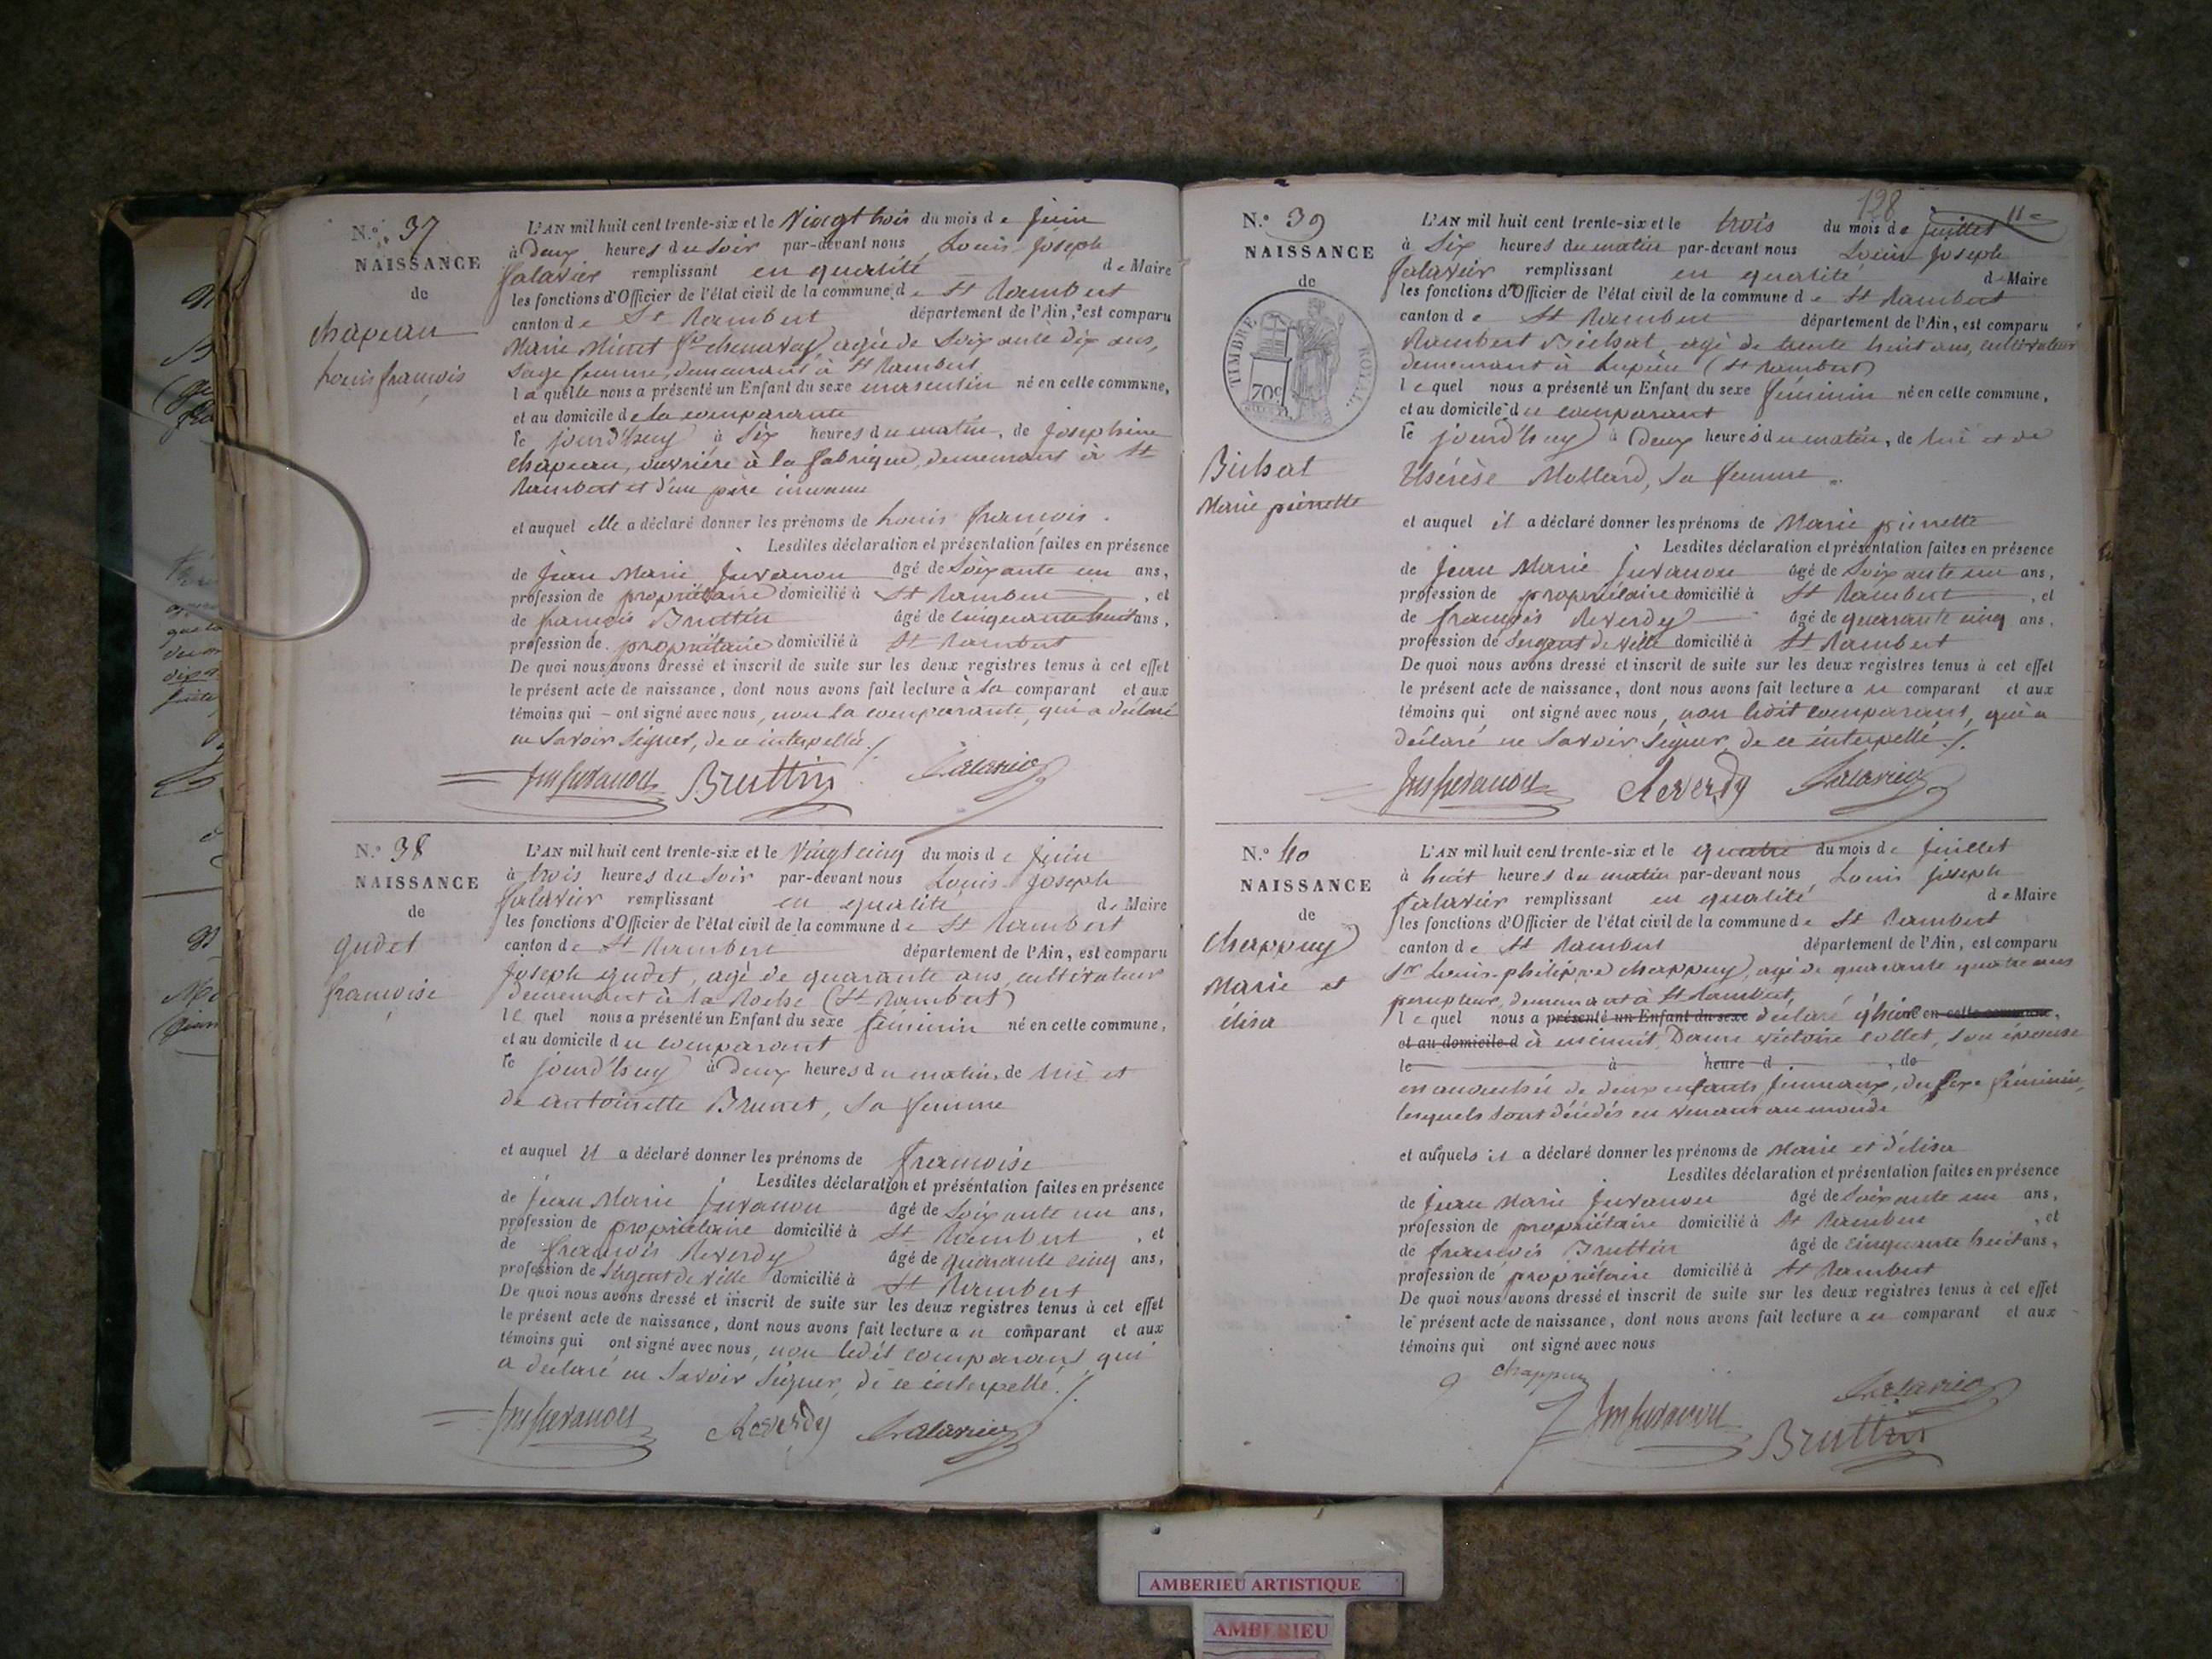 N.º 37
NAISSANCE
de
chapeau
Louis françois
L'AN mil huit cent trente-six et le Vingt trois du mois de Juin
à Deux heures du Soir par-devant nous Louis Joseph
Salavier remplissant en qualité de Maire
les fonctions d'Officier de l'état civil de la commune de St Rambert
canton de St Rambert département de l'Ain, est comparu
Marie Minet agée de Soixante dix ans,
Sage femme, demeurant à St Rambert
laquelle nous a présenté un Enfant du sexe masculin né en cette commune,
et au domicile de la comparante
le jourd'huy à Six heures du matin, de Josephine
chapeau, ouvrière à la fabrique, demeurant à St
Rambert et d'un père inconnu
et auquel elle a déclaré donner les prénoms de Louis françois.
Lesdites déclaration et présentation faites en présence
de Jean Marie Juvanon âgé de Soixante un ans,
profession de propriétaire domicilié à St Rambert, et
de françois Bruttin âgé de cinquante huit ans,
profession de propriétaire domicilié à St Rambert
De quoi nous avons dressé et inscrit de suite sur les deux registres tenus à cet effet
le présent acte de naissance, dont nous avons fait lecture à la comparant et aux
témoins qui ont signé avec nous, non la comparante, qui a déclaré
ne Savoir Signer, de ce interpellée ./.
Jm Juvanon Bruttin Salavier
N.º 38
NAISSANCE
de
gudet
françoise
L'AN mil huit cent trente-six et le Vingt cinq du mois de Juin
à trois heures du Soir par-devant nous Louis Joseph
Salavier remplissant en qualité de Maire
les fonctions d'Officier de l'état civil de la commune de St Rambert
canton de St Rambert département de l'Ain, est comparu
Joseph gudet, agé de quarante ans, cultivateur
demeurant à la (St Rambert)
lequel nous a présenté un Enfant du sexe féminin né en cette commune,
et au domicile du comparant
le jourd'huy à Deux heures du matin, de lui et
de antoinette Brunet, Sa femme
et auquel il a déclaré donner les prénoms de françoise
Lesdites déclaration et présentation faites en présence
de Jean Marie Juvanon âgé de Soixante un ans,
profession de propriétaire domicilié à St Rambert, et
de françois Reverdy âgé de quarante cinq ans,
profession de Sergent de Ville domicilié à St Rambert
De quoi nous avons dressé et inscrit de suite sur les deux registres tenus à cet effet
le présent acte de naissance, dont nous avons fait lecture a u comparant et aux
témoins qui ont signé avec nous, non ledit comparant qui
a déclaré ne Savoir Signer, de ce interpellé ./.
Jm Juvanon Reverdy Salavier
198
N.º 39
NAISSANCE
de
TIMBRE ROYAL
70c
Bichat
Marie pierrette
L'AN mil huit cent trente-six et le trois du mois de Juillet
à Six heures du matin par-devant nous Louis Joseph
Salavier remplissant en qualité de Maire
les fonctions d'Officier de l'état civil de la commune de St Rambert
canton de St Rambert département de l'Ain, est comparu
Rambert Bichat agé de trente huit ans, cultivateur
demeurant à (St Rambert)
lequel nous a présenté un Enfant du sexe féminin né en cette commune,
et au domicile du comparant
le jourd'huy à Deux heures du matin, de lui et de
Thérèse Mollard, Sa femme.
et auquel il a déclaré donner les prénoms de Marie pierrette
Lesdites déclaration et présentation faites en présence
de Jean Marie Juvanon âgé de Soixante un ans,
profession de propriétaire domicilié à St Rambert, et
de françois Reverdy âgé de quarante cinq ans,
profession de Sergent de Ville domicilié à St Rambert
De quoi nous avons dressé et inscrit de suite sur les deux registres tenus à cet effet
le présent acte de naissance, dont nous avons fait lecture a u comparant et aux
témoins qui ont signé avec nous, non ledit comparant, qui a
déclaré ne Savoir Signer, de ce interpellé ./.
Jm Juvanon Reverdy Salavier
N.º 40
NAISSANCE
de
Chappuy
Marie et
élisa
L'AN mil huit cent trente-six et le quatre du mois de Juillet
à huit heures du matin par-devant nous Louis Joseph
Salavier remplissant en qualité de Maire
les fonctions d'Officier de l'état civil de la commune de St Rambert
canton de St Rambert département de l'Ain, est comparu
Sr Louis-philippe chappuy, agé de quarante quatre ans
percepteur, demeurant à St Rambert,
lequel nous a présenté un Enfant du sexe déclaré q'hier en cette commune,
et au domicile d à minuit, Dame Victoire collet, son épouse
le à heure d , de
est accouchée de deux enfants Jumeaux, du Sexe féminin,
lesquels sont décédés en venant au monde
et auquels il a déclaré donner les prénoms de Marie et d'élisa
Lesdites déclaration et présentation faites en présence
de Jean Marie Juvanon âgé de Soixante un ans,
profession de propriétaire domicilié à St Rambert, et
de françois Bruttin âgé de cinquante huit ans,
profession de propriétaire domicilié à St Rambert
De quoi nous avons dressé et inscrit de suite sur les deux registres tenus à cet effet
le présent acte de naissance, dont nous avons fait lecture a u comparant et aux
témoins qui ont signé avec nous
chappuy Salavier
Jm Juvanon Bruttin
AMBERIEU ARTISTIQUE
AMBERIEU